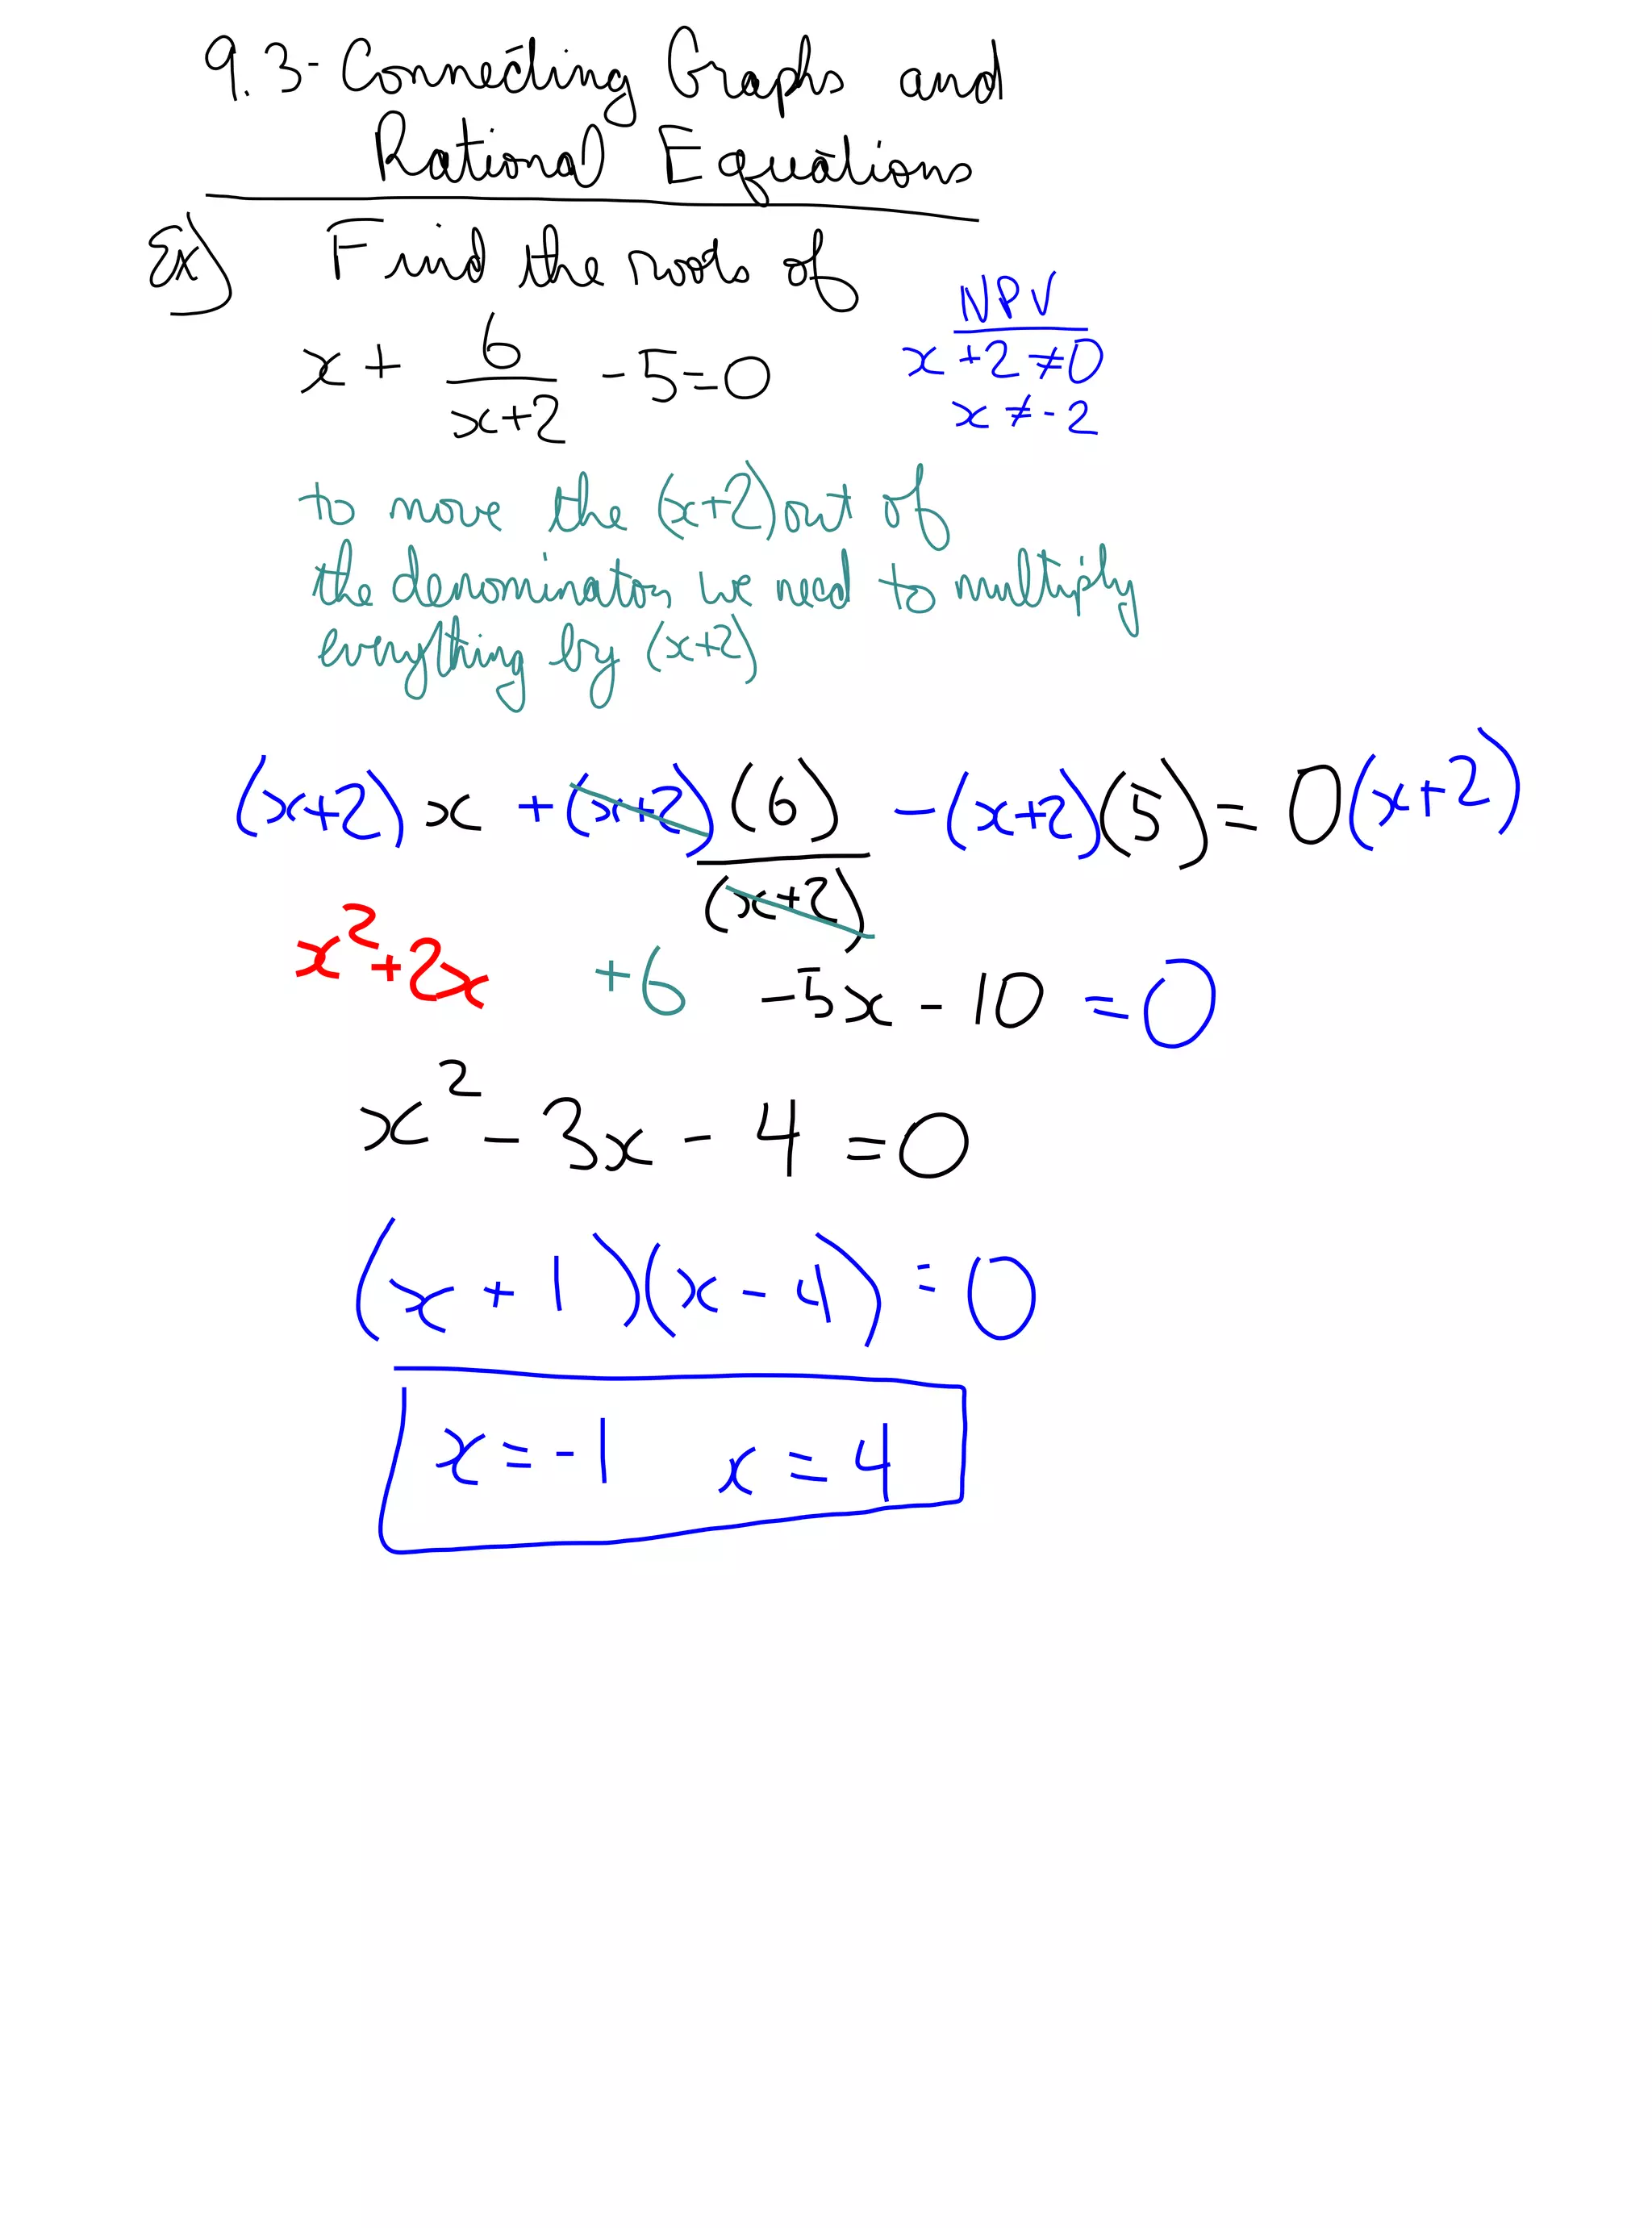 9.3- Connecting Graphs and
Rational Equations
Ex) Find the roots of
NPV
x + 6/(x+2) - 5 = 0
x + 2 ≠ 0
x ≠ -2
to move the (x+2) out of
the denominator we need to multiply
everything by (x+2)
(x+2) x + (x+2)(6)/(x+2) - (x+2)(5) = 0(x+2)
x² + 2x + 6 - 5x - 10 = 0
x² - 3x - 4 = 0
(x + 1)(x - 4) = 0
x = -1 x = 4